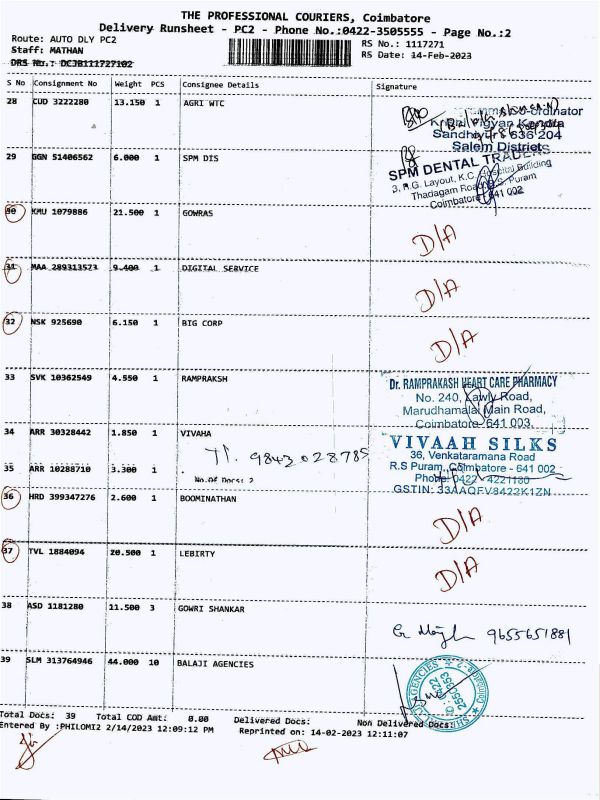 THE PROFESSIONAL COURIERS, Coimbatore
Delivery Runsheet - PC2 - Phone No.:0422-3505555 - Page No.:2
Route: AUTO DLY PC2
RS No.: 1117271
Staff: MATHAN
RS Date: 14-Feb-2023
DRS No.: DCJB111727102
S No Consignment No Weight PCS Consignee Details Signature
28 CUD 3222280 13.150 1 AGRI WTC
Co-ordinator
Krishi Vigyan Kendra
Sandhiyur 636 204
Salem District
29 GGN 51406562 6.000 1 SPM DIS
SPM DENTAL TRADERS
3, R.G. Layout, K.C. Hospital Building
Thadagam Road, R.S. Puram
Coimbatore 641 002
30 KMU 1079886 21.500 1 GOWRAS D/A
31 MAA 289313573 9.400 1 DIGITAL SERVICE D/A
32 NSK 925690 6.150 1 BIG CORP D/A
33 SVK 10362549 4.550 1 RAMPRAKSH
Dr. RAMPRAKASH HEART CARE PHARMACY
No. 240, Kawly Road,
Marudhamalai Main Road,
Coimbatore 641 003.
34 ARR 30328442 1.850 1 VIVAHA
9843028785
VIVAAH SILKS
36, Venkataramana Road
R.S Puram, Coimbatore - 641 002
Phone: 0422 4221180
GSTIN: 33AAQFV8422K1ZN
35 ARR 10288710 3.300 1
No.Of Docs: 2
36 HRD 399347276 2.600 1 BOOMINATHAN D/A
37 TVL 1884094 20.500 1 LEBIRTY D/A
38 ASD 1181280 11.500 3 GOWRI SHANKAR
9655651881
39 SLM 313764946 44.000 10 BALAJI AGENCIES
Total Docs: 39 Total COD Amt: 0.00 Delivered Docs: Non Delivered Docs:
Entered By :PHILOMI2 2/14/2023 12:09:12 PM Reprinted on: 14-02-2023 12:11:07